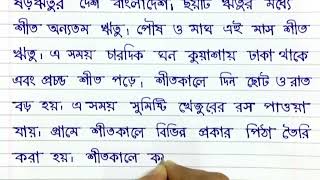 ষড়ঋতুর দেশ বাংলাদেশ; ছয়টি ঋতুর মধ্যে
শীত অন্যতম ঋতু; পৌষ ও মাঘ এই মাস শীত
ঋতু; এ সময় চারদিক ঘন কুয়াশায় ঢাকা থাকে
এবং প্রচন্ড শীত পড়ে; শীতকালে দিন ছোট ও রাত
বড় হয়। এ সময় সুমিষ্টি খেজুরের রস পাওয়া
যায়। গ্রামে শীতকালে বিভিন্ন প্রকার পিঠা তৈরি
করা হয়। শীতকালে ক